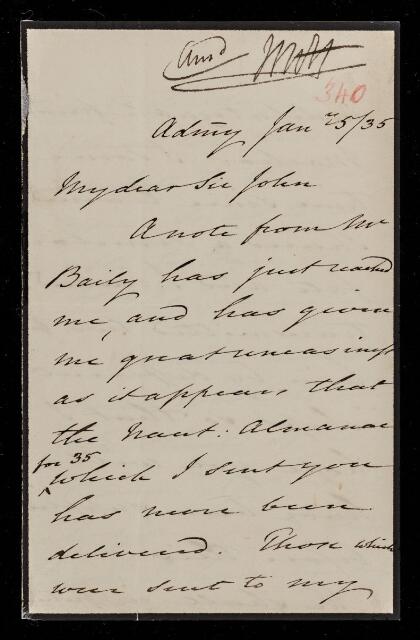 Ansd
340
Admy Jan 25/35
My dear Sir John
A note from Mr
Baily has just reached
me, and has given
me great uneasiness
as it appears that
the Naut: Almanac
for 35
which I sent you
has never been
delivered. Those which
were sent to my